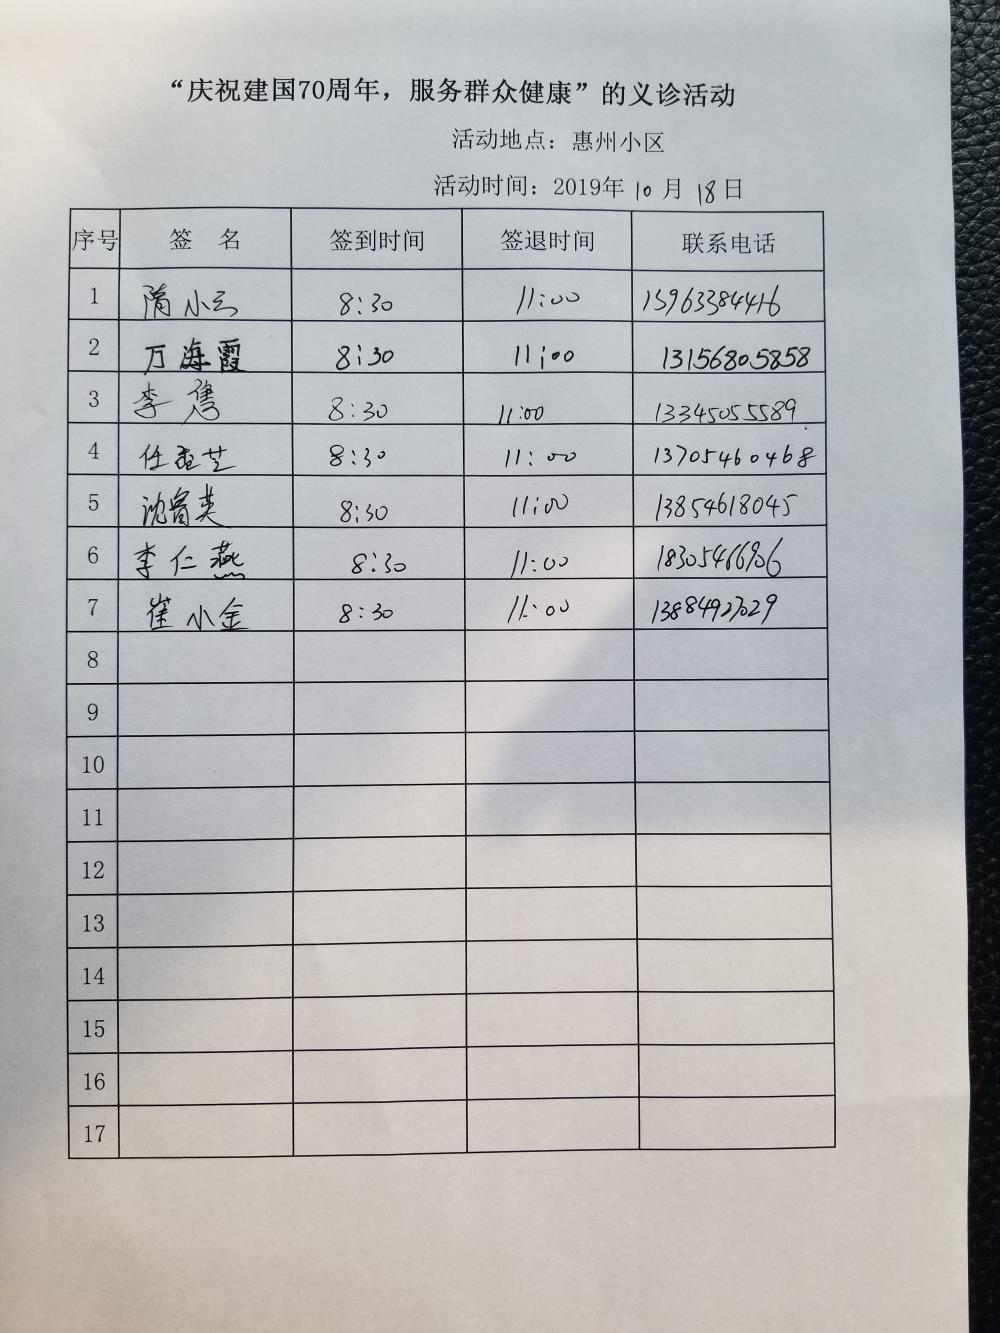 “庆祝建国70周年，服务群众健康”的义诊活动
活动地点：惠州小区
活动时间：2019年 10 月 18 日
序号 签 名 签到时间 签退时间 联系电话
1 隋小云 8:30 11:00 15963384416
2 万海霞 8:30 11:00 13156805858
3 李隽 8:30 11:00 13345055589
4 8:30 11:00 13705460468
5 8:30 11:00 13854618045
6 李仁燕 8:30 11:00
7 崔小金 8:30 11:00 13884927029
8
9
10
11
12
13
14
15
16
17